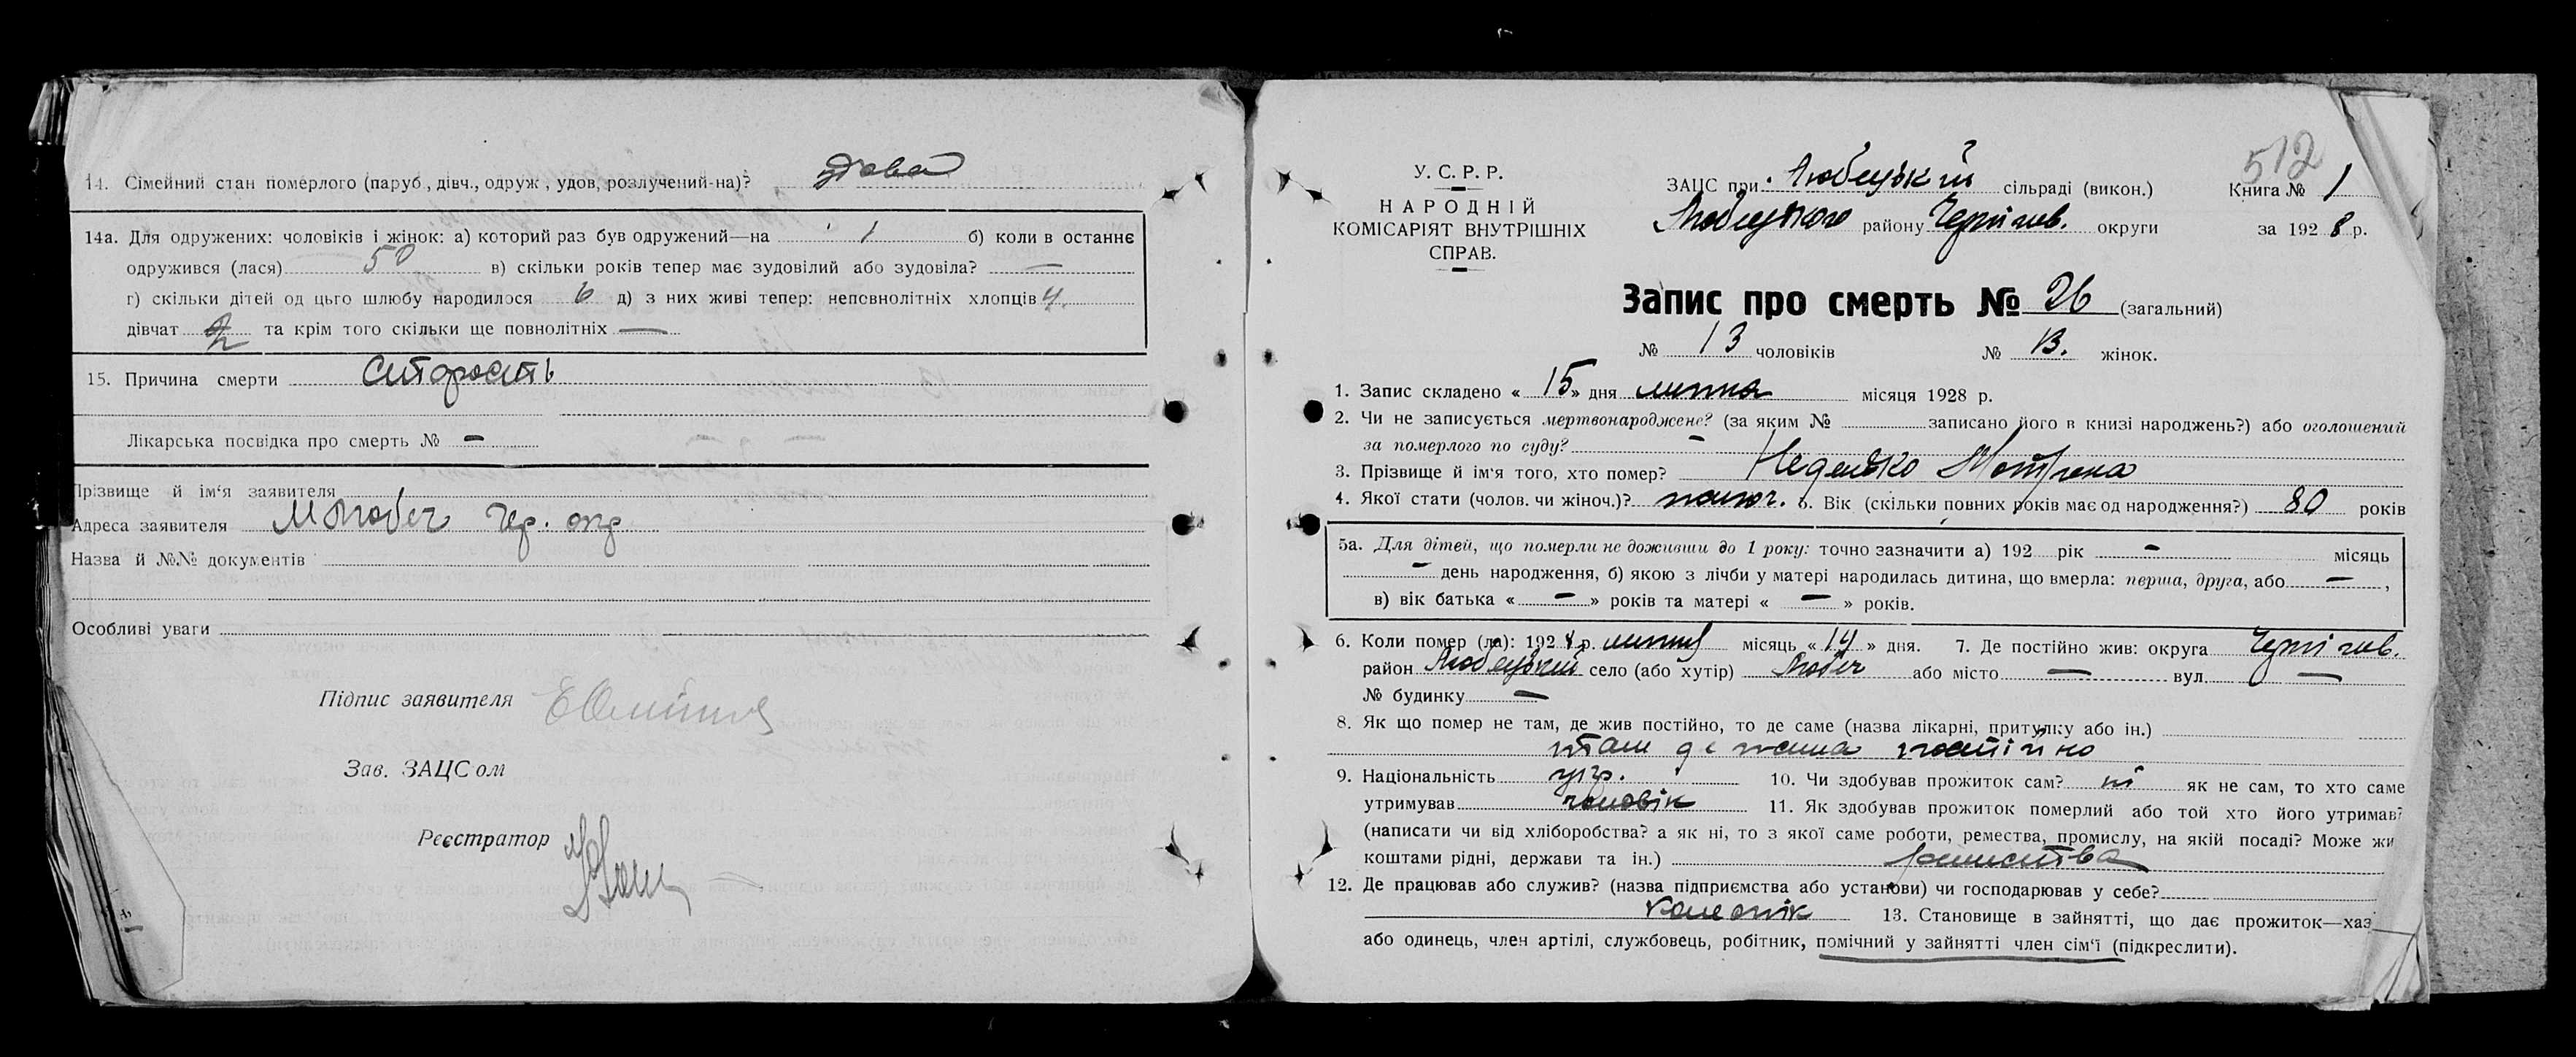 14. Сімейний стан померлого (паруб., дівч., одруж., удов, розлучений-на)? вдова
14а. Для одружених: чоловіків і жінок: а) которий раз був одружений—на 1 б) коли в останнє
одружився (лася) 50 в) скільки років тепер має зудовілий або зудовіла? —
г) скільки дітей од цього шлюбу народилося 6 д) з них живі тепер: неповнолітніх хлопців 4
дівчат 2 та крім того скільки ще повнолітніх —
15. Причина смерти старость
Лікарська посвідка про смерть № —
Прізвище й ім'я заявителя
Адреса заявителя М Любеч Чер. окр.
Назва й №№ документів
Особливі уваги
Підпис заявителя
Зав. ЗАЦСом
Реєстратор
512
У. С. Р. Р.
НАРОДНІЙ
КОМІСАРІЯТ ВНУТРІШНІХ
СПРАВ.
ЗАЦС при Любецькій сільраді (викон.) Книга № 1
Любецького району Чернігів. округи за 1928 р.
Запис про смерть № 26 (загальний)
№ 13 чоловіків № 13. жінок.
1. Запис складено « 15 » дня липня місяця 1928 р.
2. Чи не записується мертвонароджене? (за яким № записано його в книзі народжень?) або оголошений
за померлого по суду? —
3. Прізвище й ім'я того, хто помер? Мотрена
4. Якої стати (чолов. чи жіноч.)? жіноч. 5. Вік (скільки повних років має од народження?) 80 років
5а. Для дітей, що померли не доживши до 1 року: точно зазначити а) 192 рік — місяць
— день народження, б) якою з лічби у матері народилась дитина, що вмерла: перша, друга, або — ,
в) вік батька « — » років та матері « — » років.
6. Коли помер (ла): 1928 р. липня місяць « 14 » дня. 7. Де постійно жив: округа Чернігів.
район Любецький село (або хутір) Любеч або місто — вул. —
№ будинку —
8. Як що помер не там, де жив постійно, то де саме (назва лікарні, притулку або ін.)
там де жила постійно
9. Національність укр. 10. Чи здобував прожиток сам? ні як не сам, то хто саме
утримував чоловік 11. Як здобував прожиток померлий або той хто його утримав?
(написати чи від хліборобства? а як ні, то з якої саме роботи, ремества, промислу, на якій посаді? Може жи
коштами рідні, держави та ін.)
12. Де працював або служив? (назва підприємства або установи) чи господарював у себе?
13. Становище в зайнятті, що дає прожиток—хаз
або одинець, член артілі, службовець, робітник, помічний у зайнятті член сім'ї (підкреслити).